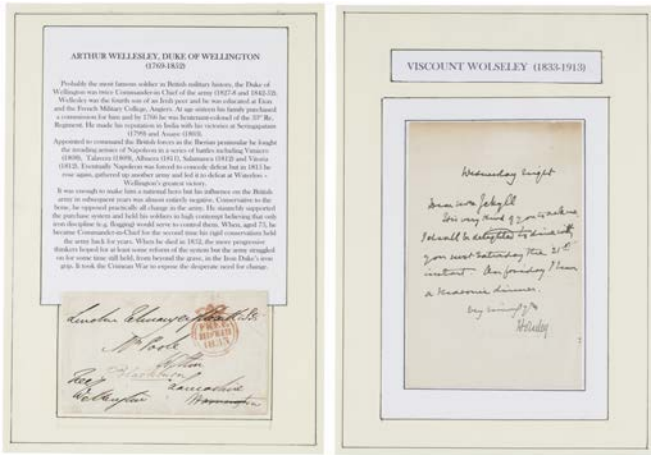 ARTHUR WELLESLEY, DUKE OF WELLINGTON
(1769-1852)
Probably the most famous soldier in British military history, the Duke of
Wellington was twice Commander-in-Chief of the army (1827-8 and 1842-52).
Wellesley was the fourth son of an Irish peer and he was educated at Eton
and the French Military College, Angiers. At age sixteen his family purchased
a commission for him and by 1766 he was lieutenant-colonel of the 33rd Re.
Regiment. He made his reputation in India with his victories at Seringapatam
(1799) and Assaye (1803).
Appointed to command the British forces in the Iberian peninsular he fought
the invading armies of Napoleon in a series of battles including Vimiero
(1808), Talavera (1809), Albuera (1811), Salamanca (1812) and Vitoria
(1812). Eventually Napoleon was forced to concede defeat but in 1815 he
rose again, gathered up another army and led it to defeat at Waterloo –
Wellington's greatest victory.
It was enough to make him a national hero but his influence on the British
army in subsequent years was almost entirely negative. Conservative to the
bone, he opposed practically all change in the army. He staunchly supported
the purchase system and held his soldiers in high contempt believing that only
iron discipline (e.g. flogging) would serve to control them. When, aged 73, he
became Commander-in-Chief for the second time his rigid conservatism held
the army back for years. When he died in 1852, the more progressive
thinkers hoped for at least some reform of the system but the army struggled
on for some time still held, from beyond the grave, in the Iron Duke's iron
grip. It took the Crimean War to expose the desperate need for change.
FREE
1835
Mr Poole
Blackburn
Lancashire
Wellington
Warrington
VISCOUNT WOLSELEY (1833-1913)
Wednesday night
Dear Mrs Jekyll
It is very kind of you to ask me
I shall be delighted to dine with
you next Saturday the 21st
instant. On Friday I have
a Masonic dinner.
Very sincerely yrs
Wolseley